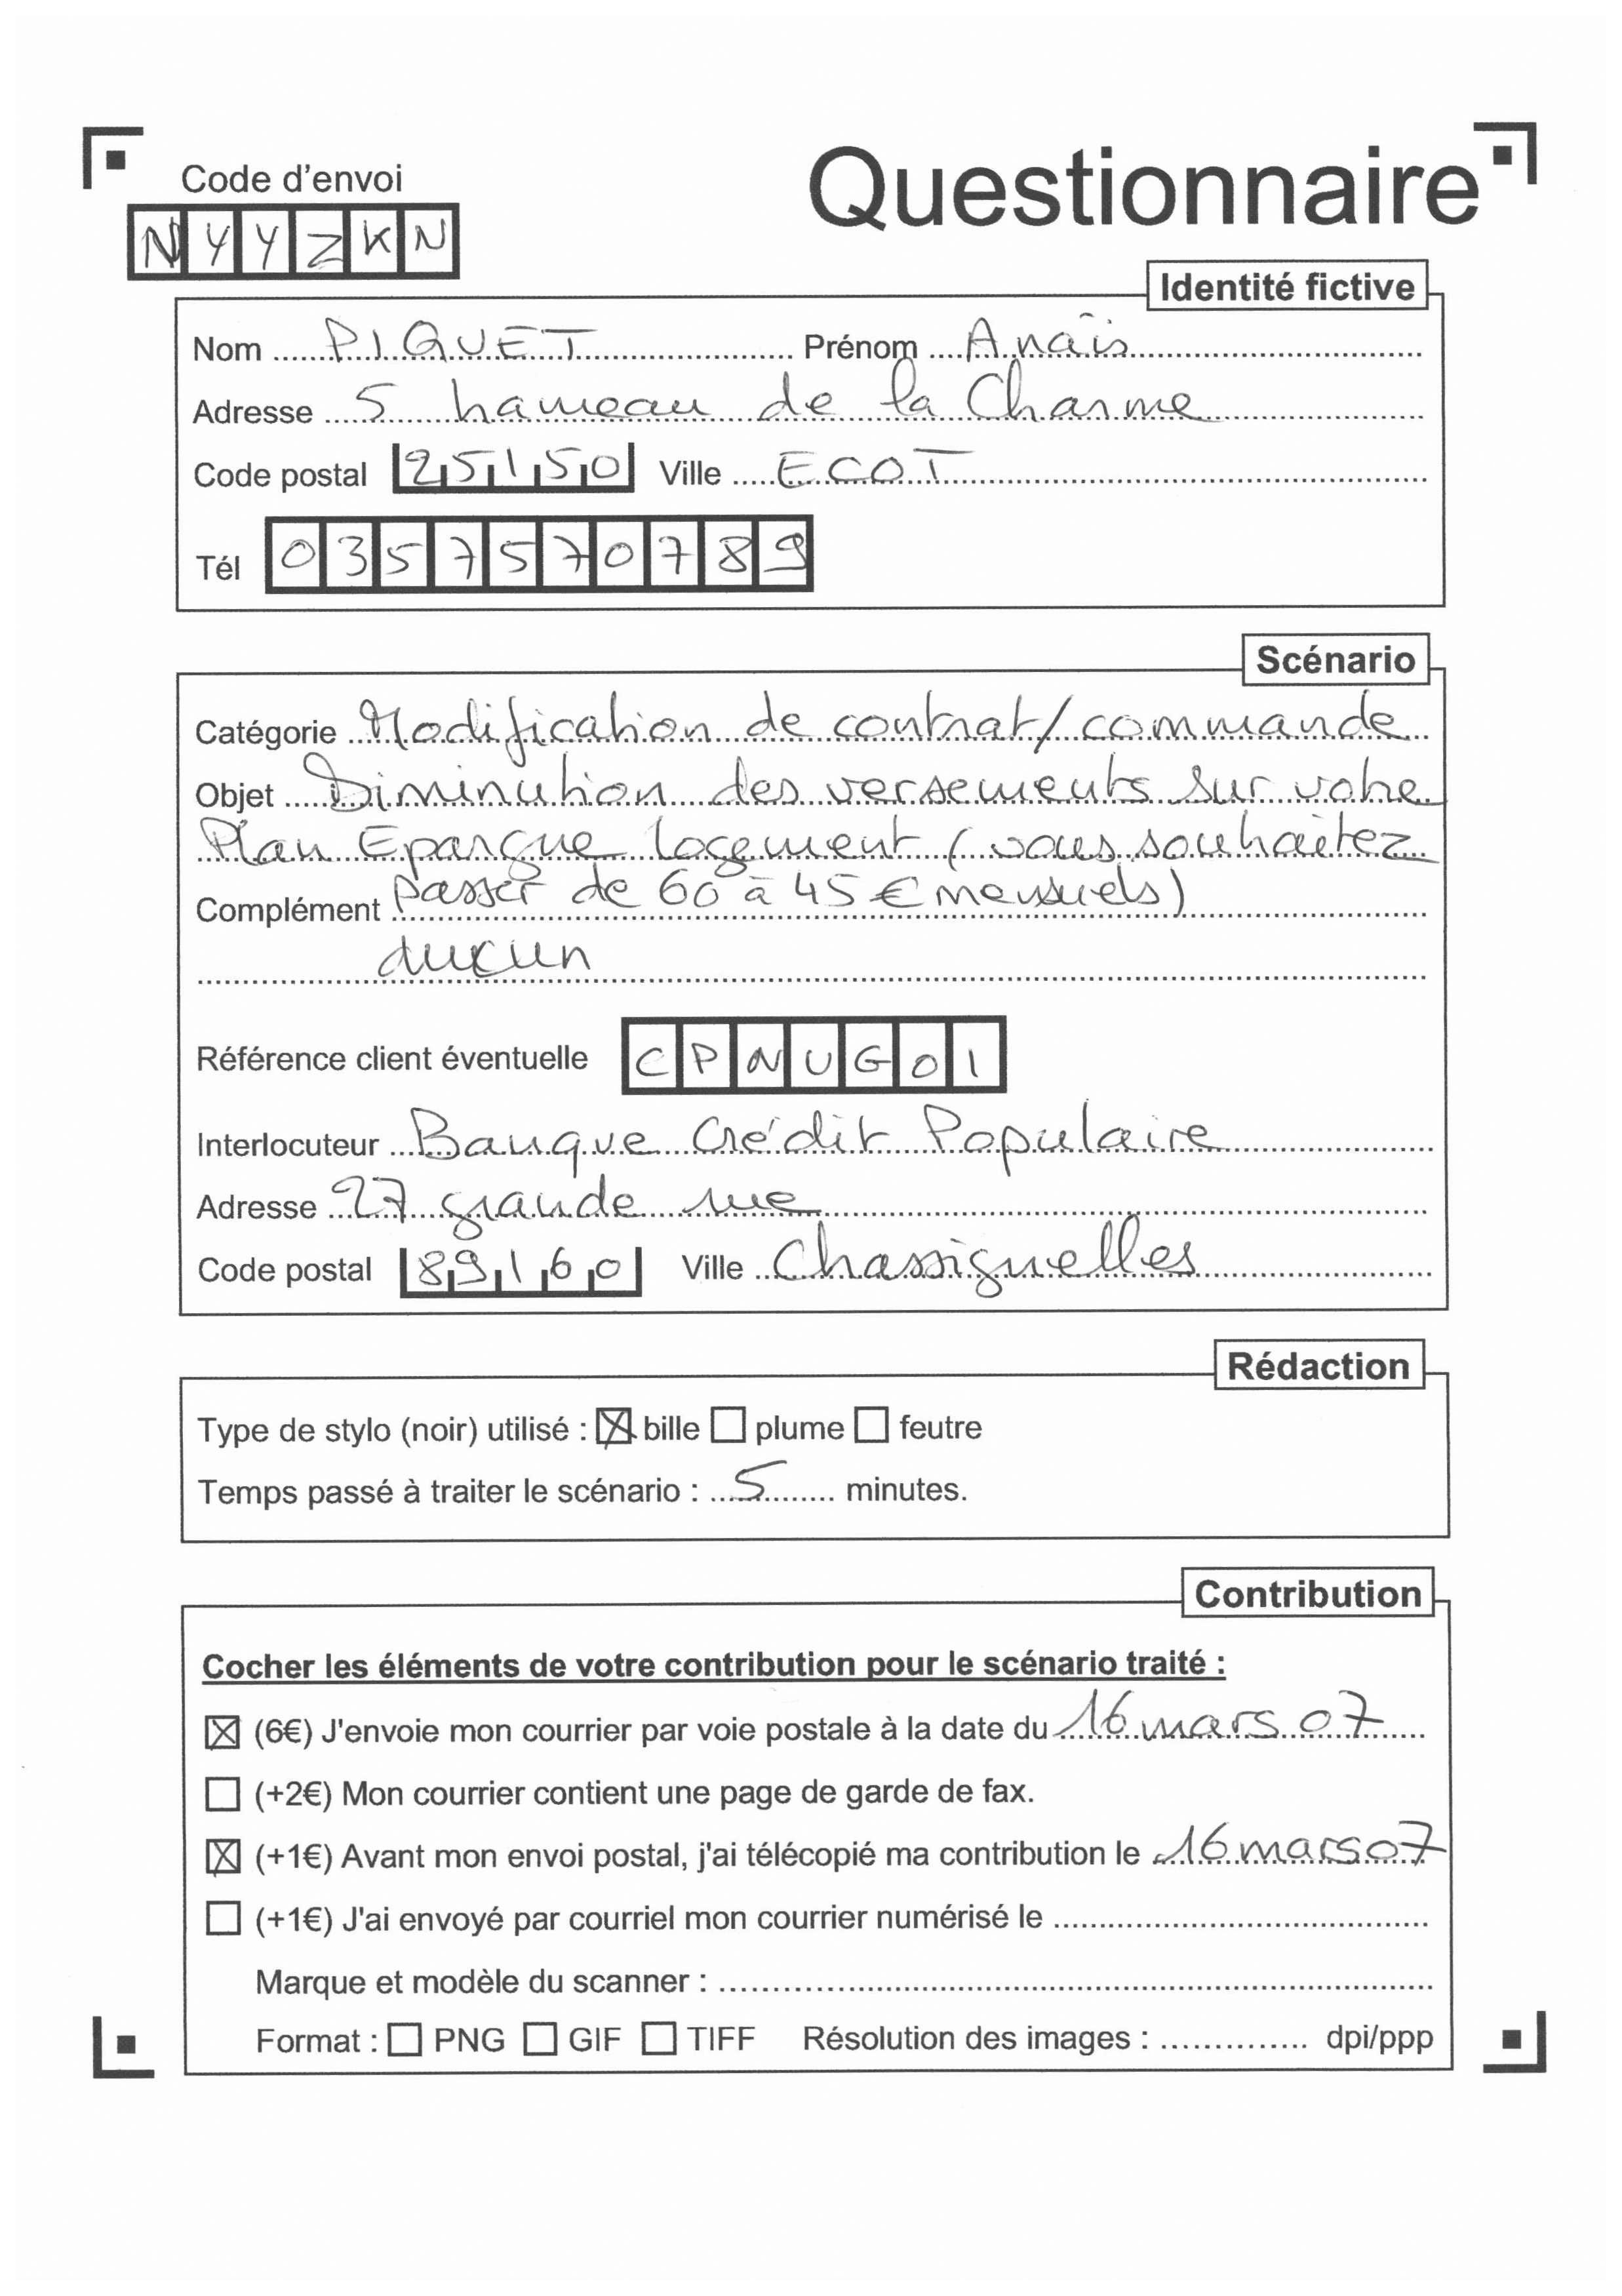 Code d'envoi
Questionnaire
NYYZKN
Identité fictive
Nom PIQUET Prénom Anaïs
Adresse 5 hameau de la Charme
Code postal 25150 Ville ECOT
Tél 0357570789
Scénario
Catégorie Modification de contrat/commande
Objet Diminution des versements sur votre
Plan Epargne Logement (vous souhaitez
Complément passer de 60 à 45 € mensuels)
aucun
Référence client éventuelle CPNUG01
Interlocuteur Banque Crédit Populaire
Adresse 27 grande rue
Code postal 89160 Ville Chassignelles
Rédaction
Type de stylo (noir) utilisé : bille plume feutre
Temps passé à traiter le scénario : 5 minutes.
Contribution
Cocher les éléments de votre contribution pour le scénario traité :
(6€) J'envoie mon courrier par voie postale à la date du 16 mars 07
(+2€) Mon courrier contient une page de garde de fax.
(+1€) Avant mon envoi postal, j'ai télécopié ma contribution le 16 mars 07
(+1€) J'ai envoyé par courriel mon courrier numérisé le
Marque et modèle du scanner :
Format : PNG GIF TIFF Résolution des images : dpi/ppp